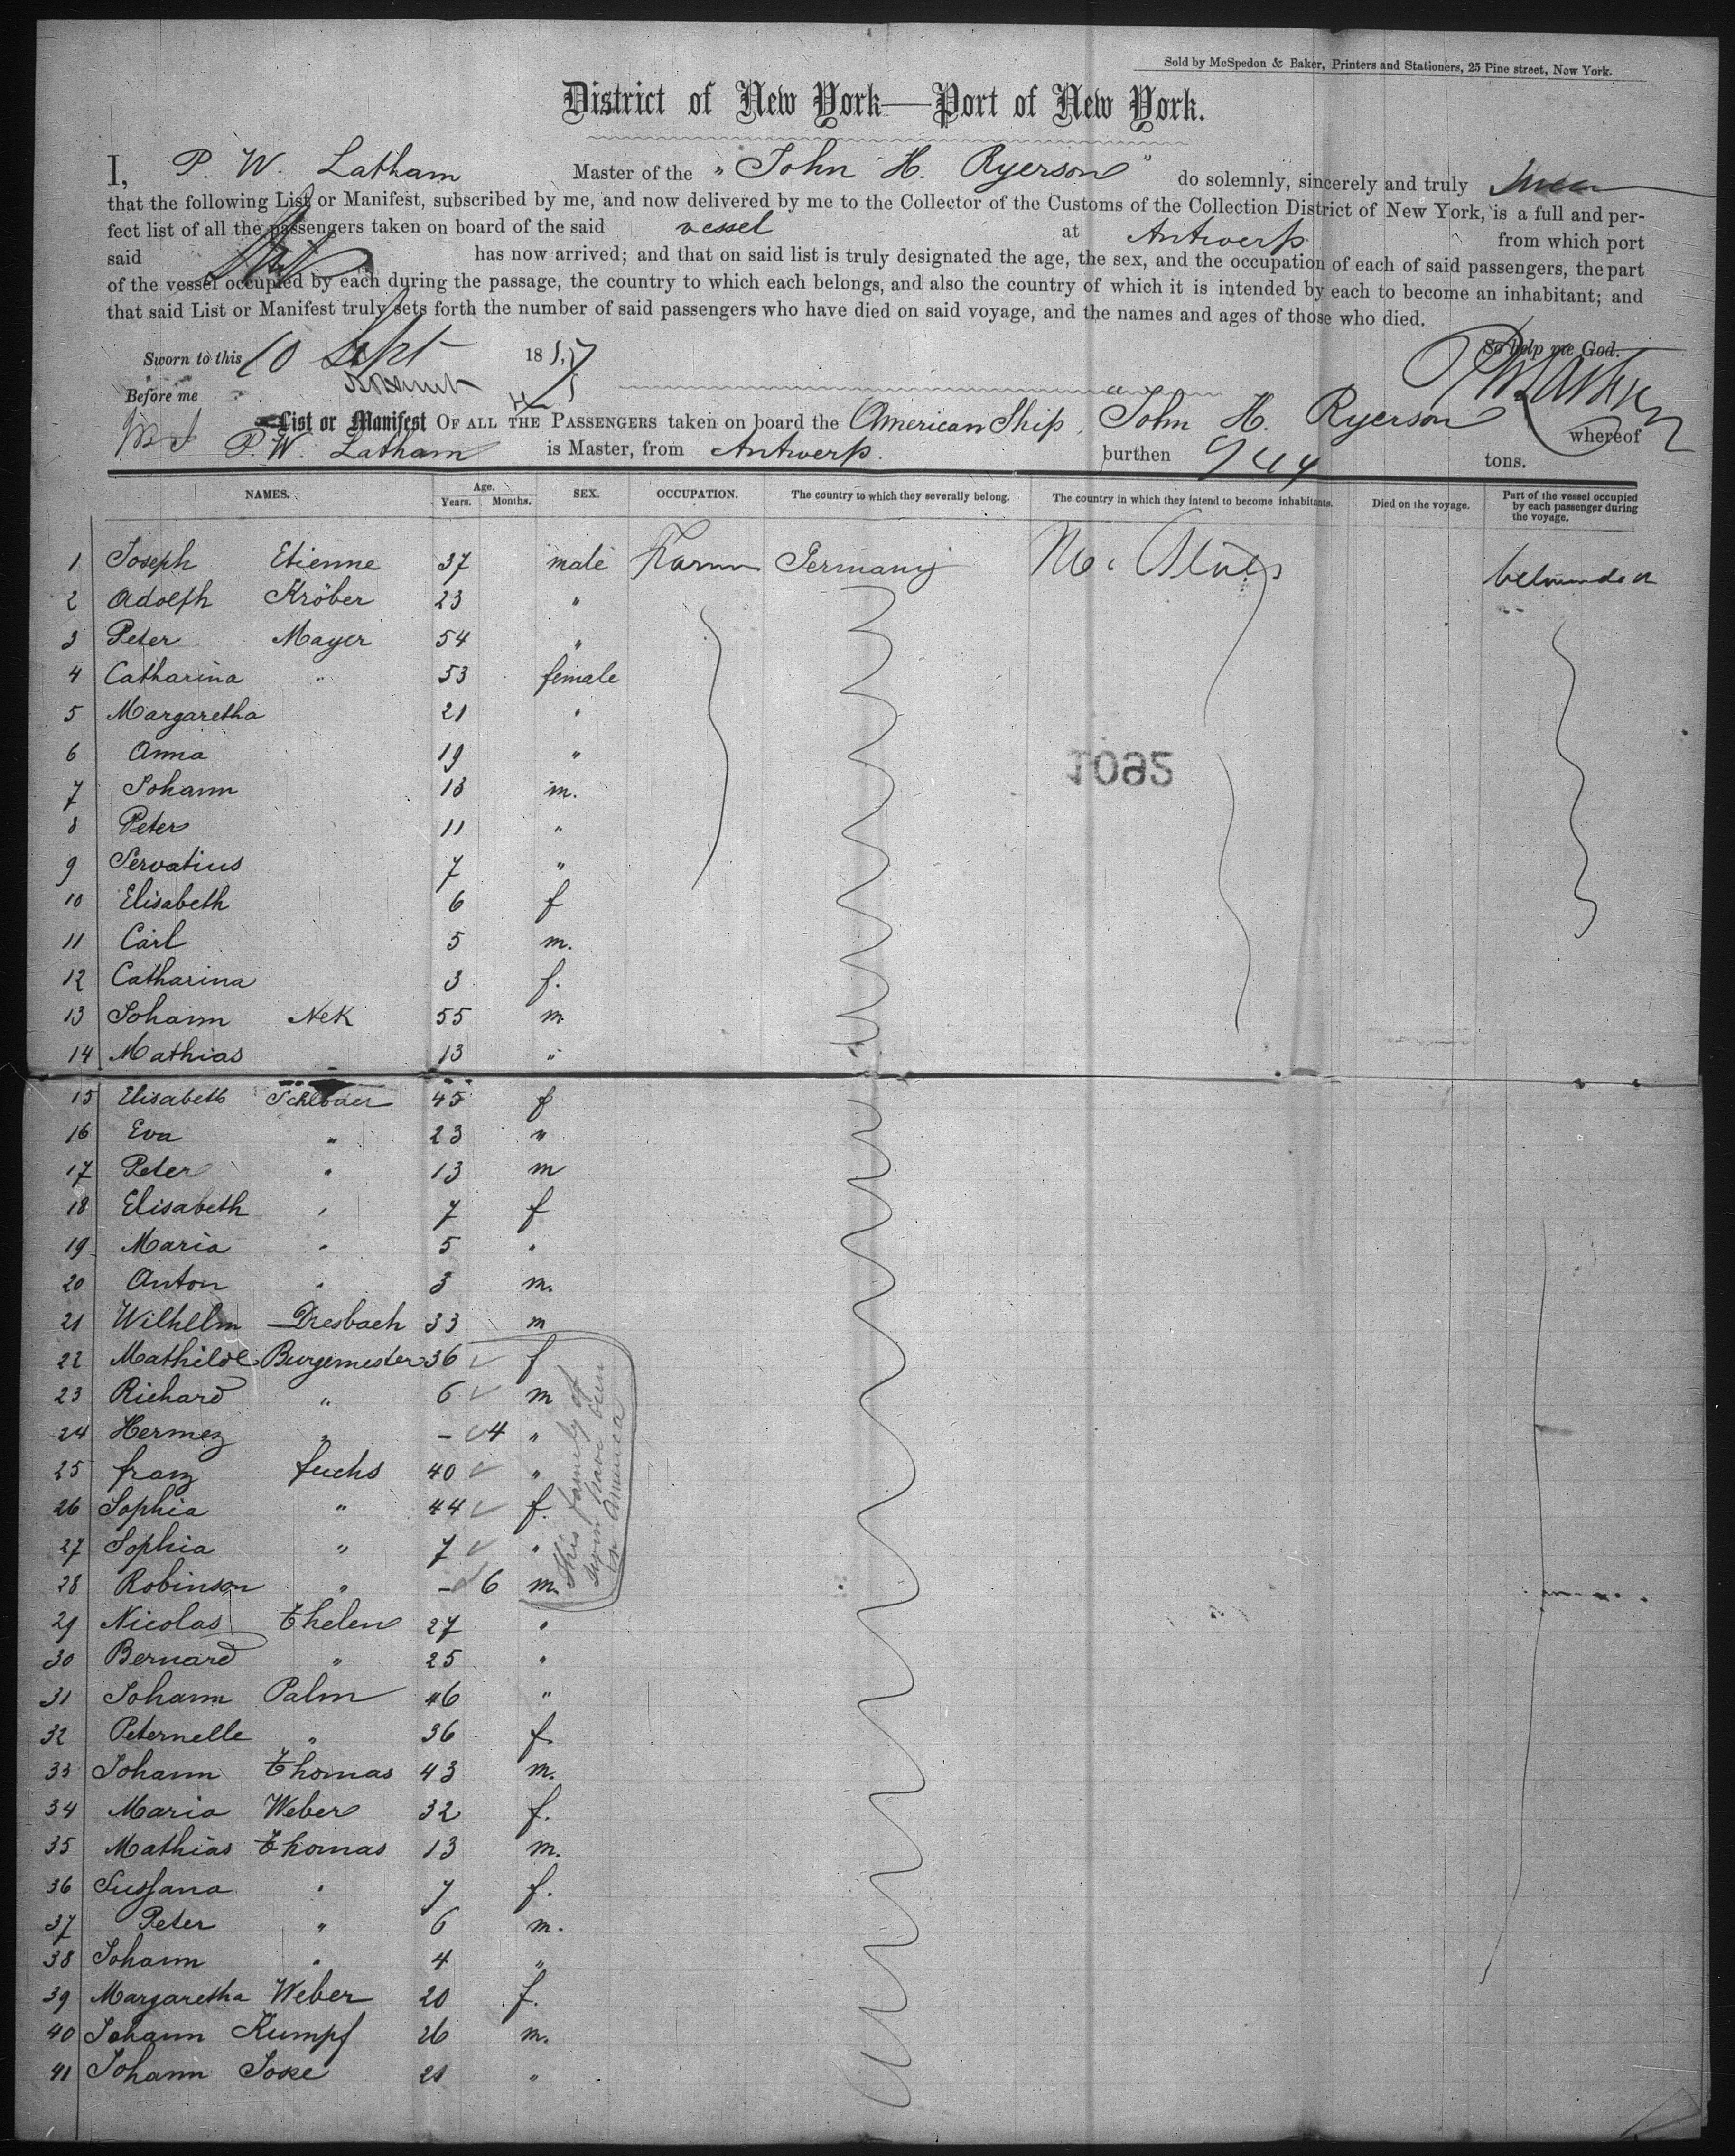 Sold by McSpedon & Baker, Printers and Stationers, 25 Pine street, New York.
District of New York—Port of New York.
I, P. W. Latham Master of the "John H. Ryerson" do solemnly, sincerely and truly swear
that the following List or Manifest, subscribed by me, and now delivered by me to the Collector of the Customs of the Collection District of New York, is a full and per-
fect list of all the passengers taken on board of the said vessel at Antwerp from which port
said Ship has now arrived; and that on said list is truly designated the age, the sex, and the occupation of each of said passengers, the part
of the vessel occupied by each during the passage, the country to which each belongs, and also the country of which it is intended by each to become an inhabitant; and
that said List or Manifest truly sets forth the number of said passengers who have died on said voyage, and the names and ages of those who died.
Sworn to this 10 Sept 1857 So help me God.
Before me
List or Manifest OF ALL THE PASSENGERS taken on board the American Ship John H. Ryerson whereof
P. W. Latham is Master, from Antwerp. burthen 944 tons.
NAMES. Age. Years. Months. SEX. OCCUPATION. The country to which they severally belong. The country in which they intend to become inhabitants. Died on the voyage. Part of the vessel occupied by each passenger during the voyage.
1 Joseph Etienne 37 male Farmer Germany
2 Adolph Kröber 23 "
3 Peter Mayer 54 "
4 Catharina " 53 female
5 Margaretha 21 "
6 Anna 19 "
7 Johann 13 m.
8 Peter 11 "
9 Servatius 7 "
10 Elisabeth 6 f
11 Carl 5 m.
12 Catharina 3 f.
13 Johann Nek 55 m
14 Mathias 13 "
15 Elisabeth 45 f
16 Eva " 23 "
17 Peter " 13 m
18 Elisabeth " 7 f
19 Maria " 5 "
20 Anton " 3 m.
21 Wilhelm Dresbach 33 m
22 Mathilde Burgemester 36 f
23 Richard " 6 m
24 Hermez " - 4 "
25 franz fuchs 40 "
26 Sophia " 44 f.
27 Sophia " 7 "
28 Robinson " - 6 m.
This family of
seven have been
in America
29 Nicolas Thelen 27 "
30 Bernard " 25 "
31 Johann Palm 46 "
32 Peternelle " 36 f
33 Johann Thomas 43 m.
34 Maria Weber 32 f.
35 Mathias Thomas 13 m.
36 Sussana " 7 f.
37 Peter " 6 m.
38 Johann " 4 "
39 Margaretha Weber 20 f.
40 Johann Kumpf 26 m.
41 Johann 21 "
1095